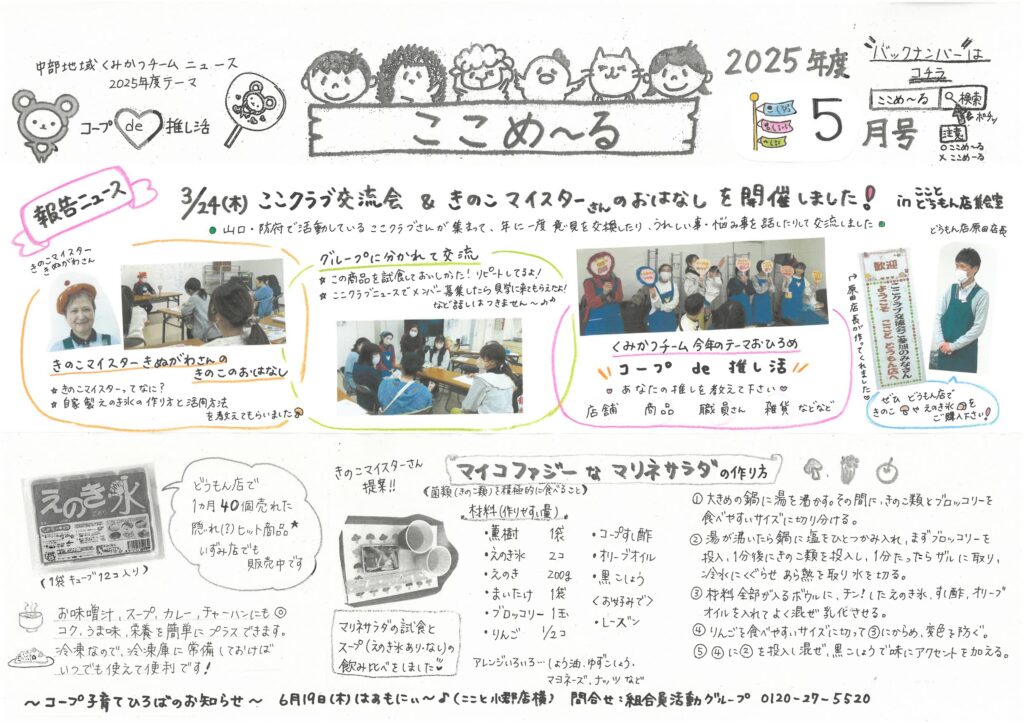 中部地域くみかつチームニュース
2025年度テーマ
コープ de 推し活
ここめ～る
2025年度
5月号
"バックナンバー"は
コチラ
ここめ～る 検索
ポチッ
注意
○ここめ～る
×ここめーる
報告ニュース
3/24(木) ここクラブ交流会 & きのこマイスターさんのおはなし を開催しました!
in こことどうもん店集会室
●山口・防府で活動しているここクラブさんが集まって、年に一度意見を交換したり、うれしい事・悩み事を話したりして交流しました●
きのこマイスター
きぬがわさん
きのこマイスターきぬがわさんの
きのこのおはなし
★きのこマイスターってなに?
★自家製えのき氷の作り方と活用方法
を教えてもらいました
グループに分かれて交流
★この商品を試食しておいしかった!リピートしてるよ!
★ここクラブニュースでメンバー募集したら見学に来てもらえたよ!
など話しはつきません～♪♪
くみかつチーム今年のテーマおひろめ
コープ de 推し活
♡あなたの推しを教えて下さい♡
店舗 商品 職員さん 雑貨 などなど
原田店長が作ってくれました♡
歓迎
ここクラブ交流会ご参加のみなさん
ようこそ こことどうもん店へ
どうもん店原田店長
ぜひ どうもん店で
きのこやえのき氷を
ご購入下さい!
えのき氷
(1袋キューブ12コ入り)
どうもん店で
1カ月40個売れた
隠れ(?)ヒット商品★
いずみ店でも
販売中です
お味噌汁、スープ、カレー、チャーハンにも◎
コク、うま味、栄養を簡単にプラスできます。
冷凍なので、冷凍庫に常備しておけば
いつでも使えて便利です!
きのこマイスターさん
提案!!
マイコファジーなマリネサラダの作り方
(菌類(きのこ類)を積極的に食べること)
マリネサラダの試食と
スープ(えのき氷あり・なし)の
飲み比べをしました♡
材料(作りやすい量)
・蕙樹 1袋
・えのき氷 2コ
・えのき 200g
・まいたけ 1袋
・ブロッコリー 1玉
・りんご 1/2コ
・コープすし酢
・オリーブオイル
・黒こしょう
<お好みで>
・レーズン
アレンジいろいろ…しょう油、ゆずこしょう、
マヨネーズ、ナッツなど
①大きめの鍋に湯を沸かす。その間に、きのこ類とブロッコリーを
食べやすいサイズに切り分ける。
②湯が沸いたら鍋に塩をひとつかみ入れ、まずブロッコリーを
投入、1分後にきのこ類を投入し、1分たったらザルに取り、
冷水にくぐらせあら熱を取り水を切る。
③材料全部が入るボウルに、チン!したえのき氷、すし酢、オリーブ
オイルを入れてよく混ぜ乳化させる。
④りんごを食べやすいサイズに切って③にからめ、変色を防ぐ。
⑤④に②を投入し混ぜ、黒こしょうで味にアクセントを加える。
～コープ子育てひろばのお知らせ～ 6月19日(木)はぁもにぃ～♪(ここと小郡店横) 問合せ:組合員活動グループ 0120-27-5520